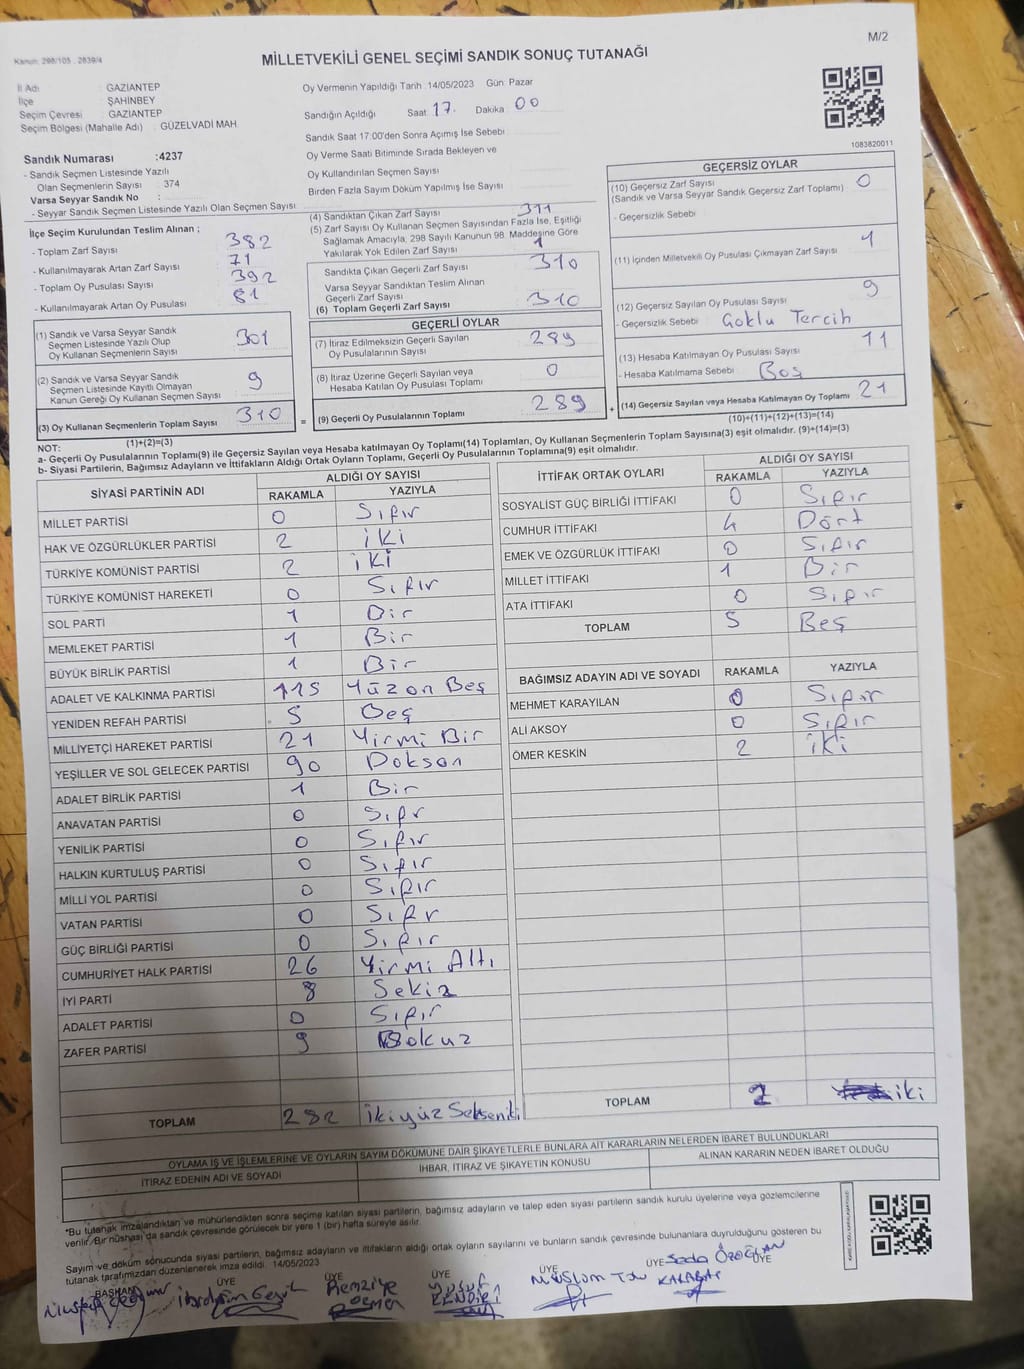 M/2
Kanun: 298/105 , 2839/4
MİLLETVEKİLİ GENEL SEÇİMİ SANDIK SONUÇ TUTANAĞI
İl Adı : GAZİANTEP
İlçe : ŞAHİNBEY
Seçim Çevresi : GAZİANTEP
Seçim Bölgesi (Mahalle Adı) : GÜZELVADİ MAH.
Sandık Numarası :4237
- Sandık Seçmen Listesinde Yazılı
Olan Seçmenlerin Sayısı : 374
Varsa Seyyar Sandık No :
- Seyyar Sandık Seçmen Listesinde Yazılı Olan Seçmen Sayısı
Oy Vermenin Yapıldığı Tarih :14/05/2023 Gün: Pazar
Sandığın Açıldığı Saat 17. Dakika 00
Sandık Saat 17:00'den Sonra Açımış İse Sebebi
Oy Verme Saati Bitiminde Sırada Bekleyen ve
Oy Kullandırılan Seçmen Sayısı
Birden Fazla Sayım Döküm Yapılmış İse Sayısı
1083820011
İlçe Seçim Kurulundan Teslim Alınan ;
- Toplam Zarf Sayısı 382
- Kullanılmayarak Artan Zarf Sayısı 71
- Toplam Oy Pusulası Sayısı 392
- Kullanılmayarak Artan Oy Pusulası 81
(1) Sandık ve Varsa Seyyar Sandık
Seçmen Listesinde Yazılı Olup
Oy Kullanan Seçmenlerin Sayısı 301
(2) Sandık ve Varsa Seyyar Sandık
Seçmen Listesinde Kayıtlı Olmayan
Kanun Gereği Oy Kullanan Seçmen Sayısı 9
(3) Oy Kullanan Seçmenlerin Toplam Sayısı 310
(1)+(2)=(3)
(4) Sandıktan Çıkan Zarf Sayısı 311
(5) Zarf Sayısı Oy Kullanan Seçmen Sayısından Fazla İse, Eşitliği
Sağlamak Amacıyla, 298 Sayılı Kanunun 98. Maddesine Göre
Yakılarak Yok Edilen Zarf Sayısı 1
Sandıkta Çıkan Geçerli Zarf Sayısı 310
Varsa Seyyar Sandıktan Teslim Alınan
Geçerli Zarf Sayısı
(6) Toplam Geçerli Zarf Sayısı 310
GEÇERLİ OYLAR
(7) İtiraz Edilmeksizin Geçerli Sayılan
Oy Pusulalarının Sayısı 289
(8) İtiraz Üzerine Geçerli Sayılan veya
Hesaba Katılan Oy Pusulası Toplamı 0
= (9) Geçerli Oy Pusulalarının Toplamı 289 +
GEÇERSİZ OYLAR
(10) Geçersiz Zarf Sayısı
(Sandık ve Varsa Seyyar Sandık Geçersiz Zarf Toplamı) 0
- Geçersizlik Sebebi
(11) İçinden Milletvekili Oy Pusulası Çıkmayan Zarf Sayısı 1
(12) Geçersiz Sayılan Oy Pusulası Sayısı 9
- Geçersizlik Sebebi Çoklu Tercih
(13) Hesaba Katılmayan Oy Pusulası Sayısı 11
- Hesaba Katılmama Sebebi Boş
(14) Geçersiz Sayılan veya Hesaba Katılmayan Oy Toplamı 21
(10)+(11)+(12)+(13)=(14)
NOT:
a- Geçerli Oy Pusulalarının Toplamı(9) ile Geçersiz Sayılan veya Hesaba katılmayan Oy Toplamı(14) Toplamları, Oy Kullanan Seçmenlerin Toplam Sayısına(3) eşit olmalıdır. (9)+(14)=(3)
b- Siyasi Partilerin, Bağımsız Adayların ve İttifakların Aldığı Ortak Oyların Toplamı, Geçerli Oy Pusulalarının Toplamına(9) eşit olmalıdır.
SİYASİ PARTİNİN ADI ALDIĞI OY SAYISI
RAKAMLA YAZIYLA
MİLLET PARTİSİ 0 Sıfır
HAK VE ÖZGÜRLÜKLER PARTİSİ 2 iki
TÜRKİYE KOMÜNİST PARTİSİ 2 iki
TÜRKİYE KOMÜNİST HAREKETİ 0 Sıfır
SOL PARTİ 1 Bir
MEMLEKET PARTİSİ 1 Bir
BÜYÜK BİRLİK PARTİSİ 1 Bir
ADALET VE KALKINMA PARTİSİ 115 Yüzon Beş
YENİDEN REFAH PARTİSİ 5 Beş
MİLLİYETÇİ HAREKET PARTİSİ 21 Yirmi Bir
YEŞİLLER VE SOL GELECEK PARTİSİ 90 Doksan
ADALET BİRLİK PARTİSİ 1 Bir
ANAVATAN PARTİSİ 0 Sıfr
YENİLİK PARTİSİ 0 Sıfır
HALKIN KURTULUŞ PARTİSİ 0 Sıfır
MİLLİ YOL PARTİSİ 0 Sıfır
VATAN PARTİSİ 0 Sıfr
GÜÇ BİRLİĞİ PARTİSİ 0 Sıfır
CUMHURİYET HALK PARTİSİ 26 Yirmi Altı
İYİ PARTİ 8 Sekiz
ADALET PARTİSİ 0 Sıfır
ZAFER PARTİSİ 9 Dokuz
TOPLAM 282 İkiyüz Sekseniki
İTTİFAK ORTAK OYLARI ALDIĞI OY SAYISI
RAKAMLA YAZIYLA
SOSYALİST GÜÇ BİRLİĞİ İTTİFAKI 0 Sıfır
CUMHUR İTTİFAKI 4 Dört
EMEK VE ÖZGÜRLÜK İTTİFAKI 0 Sıfır
MİLLET İTTİFAKI 1 Bir
ATA İTTİFAKI 0 Sıfır
TOPLAM 5 Beş
BAĞIMSIZ ADAYIN ADI VE SOYADI RAKAMLA YAZIYLA
MEHMET KARAYILAN 0 Sıfır
ALİ AKSOY 0 Sıfır
ÖMER KESKİN 2 iki
TOPLAM 2 iki
OYLAMA İŞ VE İŞLEMLERİNE VE OYLARIN SAYIM DÖKÜMÜNE DAİR ŞİKAYETLERLE BUNLARA AİT KARARLARIN NELERDEN İBARET BULUNDUKLARI
İTİRAZ EDENİN ADI VE SOYADI İHBAR, İTİRAZ VE ŞİKAYETİN KONUSU ALINAN KARARIN NEDEN İBARET OLDUĞU
*Bu tutanak imzalandıktan ve mühürlendikten sonra seçime katılan siyasi partilerin, bağımsız adayların ve talep eden siyasi partilerin sandık kurulu üyelerine veya gözlemcilerine
verilir. Bir nüshası da sandık çevresinde görülecek bir yere 1 (bir) hafta süreyle asılır.
Sayım ve döküm sonucunda siyasi partilerin, bağımsız adayların ve ittifakların aldığı ortak oyların sayılarını ve bunların sandık çevresinde bulunanlara duyrulduğunu gösteren bu
tutanak tarafımızdan düzenlenerek imza edildi. 14/05/2023
BAŞKAN ÜYE ÜYE ÜYE ÜYE ÜYE ÜYE
Remziye Yusuf Müslüm Seda ÖZOĞLAN